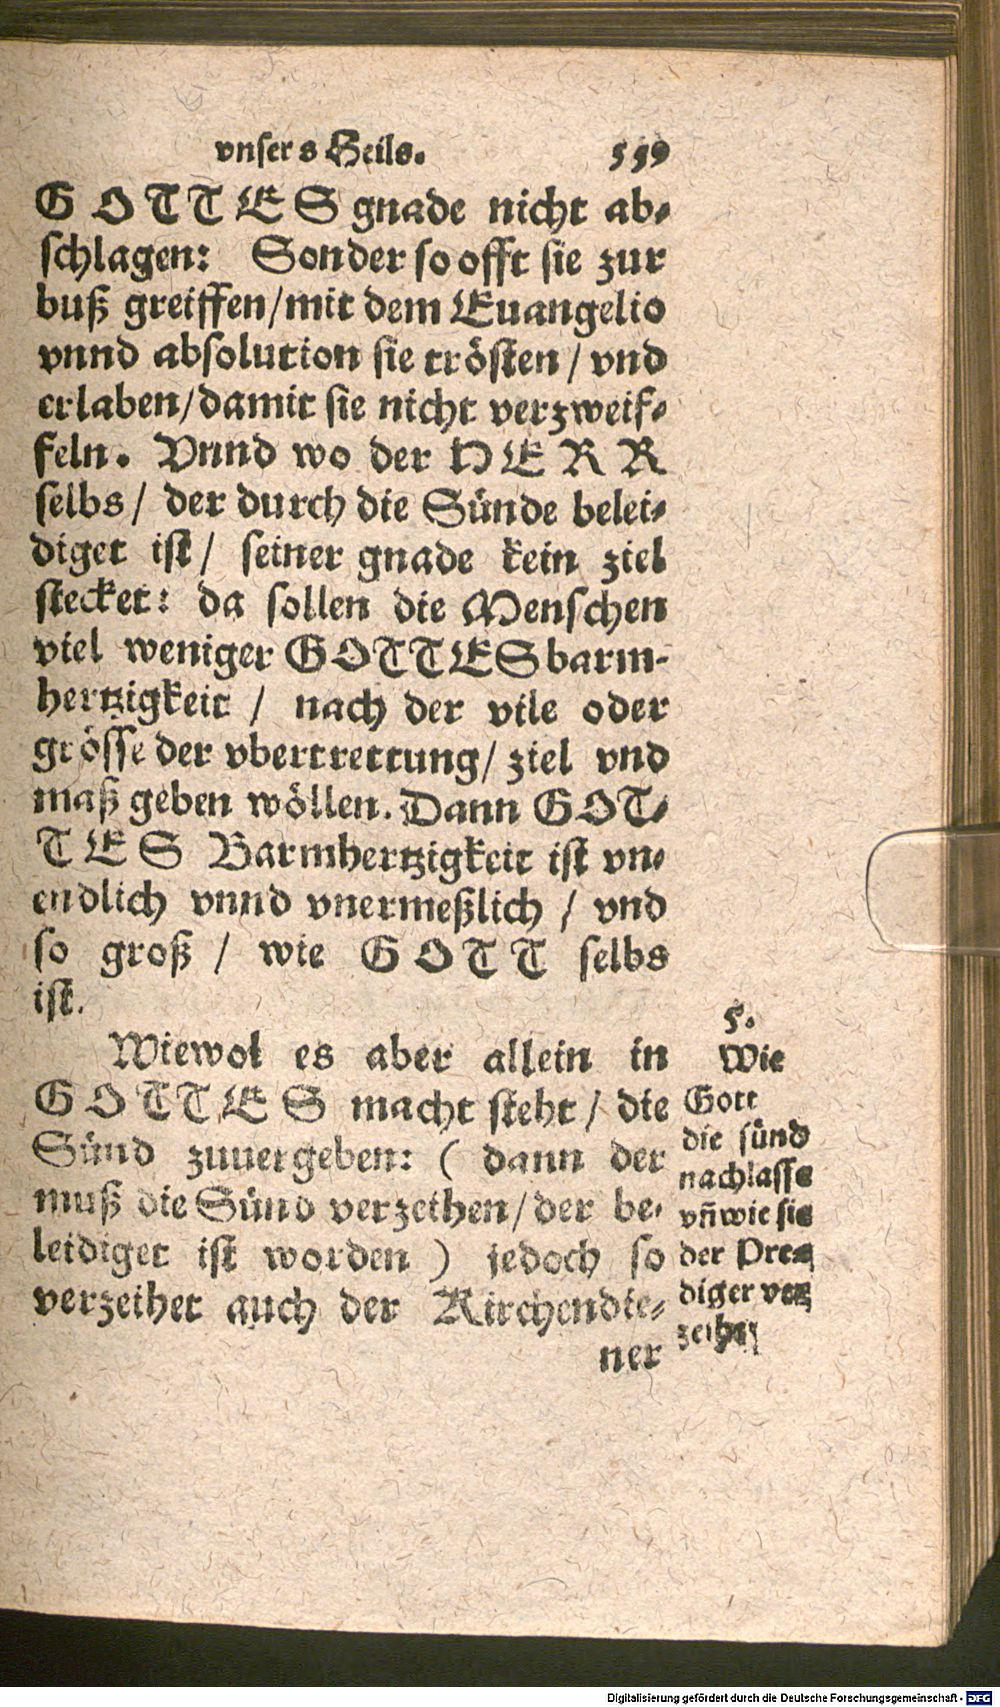 vnsers Heils. 559
GOTTES gnade nicht ab⸗
schlagen: Sonder so offt sie zur
buß greiffen/mit dem Euangelio
vnnd absolution sie trösten / vnd
erlaben/damit sie nicht verzweif⸗
feln. Vnnd wo der HERR
selbs/ der durch die Sünde belei⸗
diget ist/ seiner gnade kein ziel
stecket: da sollen die Menschen
viel weniger GOTTES barm⸗
hertzigkeit / nach der vile oder
grösse der vbertrettung/ ziel vnd
maß geben wöllen. Dann GOT⸗
TES Barmhertzigkeit ist vn⸗
endlich vnnd vnermeßlich / vnd
so groß / wie GOTT selbs
ist.
Wiewol es aber allein in
GOTTES macht steht / die
Sünd zuuergeben: ( dann der
muß die Sünd verzeihen/der be⸗
leidiget ist worden ) jedoch so
verzeihet auch der Kirchendie⸗
ner
5.
Wie
Gott
die sünd
nachlasse
vn̄ wie sie
der Pre⸗
diger ver⸗
zeihe